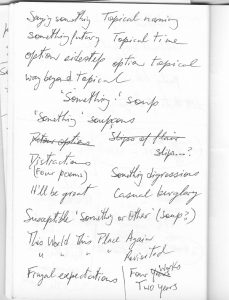 Saying something Topical naming
something funny Topical time
option sidestep option topical
way beyond topical
'Something!' soup
'Something' soupcons
Retour option Slips of flair
slips...?
Distractions
(Four poems) Something digressions
It'll be great Casual burglary
Susceptible 'Something or Other' (soup?)
This World This Place Again
" " " " Revisited
Frugal expectations Four works
Two years